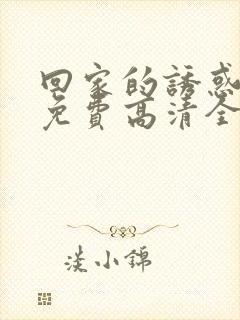 回家的誘惑
免費高清全
淡小錦